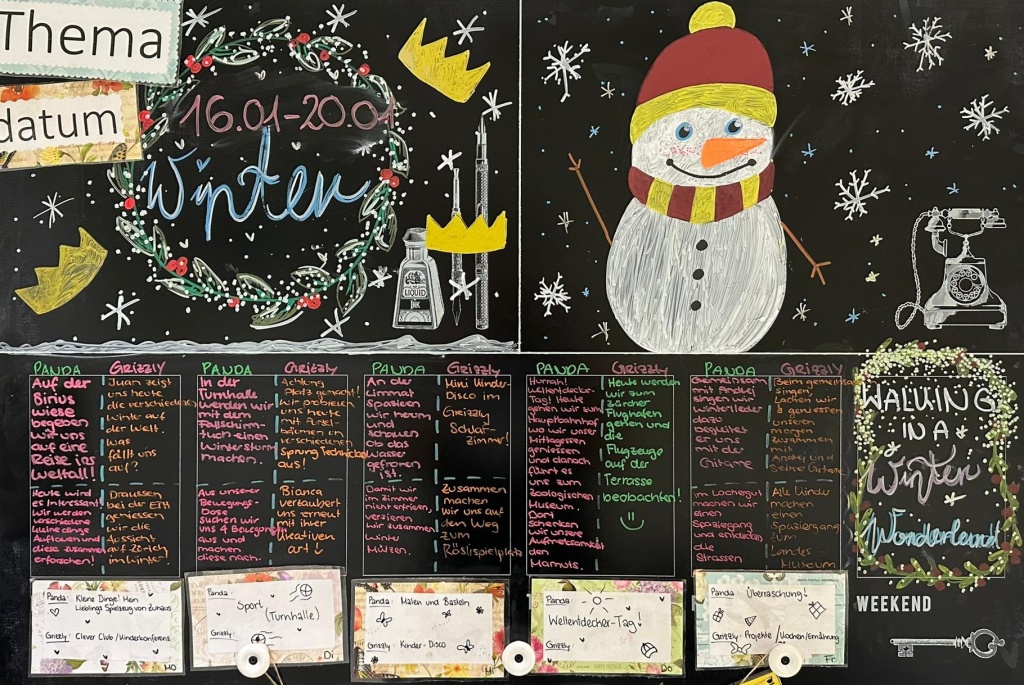 Thema
datum
16.01-20.01
Winter
LIQUID
INK
PANDA
GRIZZLY
Auf der
Sirius
wiese
begeben
wir uns
auf eine
Reise ins
Weltall!
Juan zeigt
uns heute
die verschiedenen
Winter auf
der Welt.
was
fällt uns
auf?
Heute wird
es interessant!
Wir werden
verschiedene
kleine dinge
Aufbauen und
diese zusammen
erforschen!
Draussen
bei der ETH
geniessen
wir die
Aussicht
auf Zürich
im Winter.
PANDA
GRIZZLY
In der
Turnhalle
werden wir
mit dem
Fallschirm-
tuch einen
Wintersturm
machen.
Achtung
Platz gemacht!
wir probieren
uns heute
mit
verschiedenen
Sprung Techniken
aus!
Aus unserer
Bewegungs-
Dose
suchen wir
uns 4 Bewegungen
aus und
machen
diese nach.
Bianca
verzaubert
uns erneut
mit ihrer
kreativen
art!
PANDA
Grizzly
An der
Limmat
Spazieren
wir herum
und
schauen
ob das
Wasser
gefroren
ist.
Mini Kinder-
Disco im
Grizzly
Schlaf-
zimmer!
Damit wir
im Zimmer
nicht erfrieren,
verzieren
wir zusammen
Winter
Mützen.
Zusammen
machen
wir uns auf
den Weg
zum
Röslispielplatz
PANDA
Grizzly
Hurrah!
Weltentdecker-
Tag! Heute
gehen wir zum
Hauptbahnhof
wo wir unser
Mittagessen
geniessen
und danach
führt es
uns zum
zoologischen
Museum.
Dort
schenken
wir unsere
Aufmerksamkeit
den
Mamuts.
Heute werden
wir zum
zürcher
Flughafen
gehen und
die
Flugzeuge
auf der
Terrasse
beobachten!
PANDA
Grizzly
Gemeinsam
mit Andrej
singen wir
winterlieder
dazu
begleitet
er uns
mit der
Gitarre
Beim gemeinsamen
singen
Lachen wir
& geniessen
unseren
morgen
zusammen
mit
Andrej und
seiner Gitarre
im Lochergut
machen wir
einen
Spaziergang
und entdecken
die
Strassen
Alle Kinder
machen
einen
Spaziergang
zum
Landes-
Museum
WALKING
IN A
Winter
Wonderland!
WEEKEND
Panda: Kleine Dinge/ Mein
Lieblings Spielzeug von Zuhaus
Grizzly: Clever Club /Kinderkonferenz
Mo
Panda:
Sport
(Turnhalle)
Grizzly:
Di
Panda: Malen und Basteln
Grizzly: Kinder-Disco
Mi
Panda:
Weltentdecker-Tag!
Grizzly:
Do
Panda: Überraschung!
Grizzly: Projekte /Kochen/Ernährung
Fr